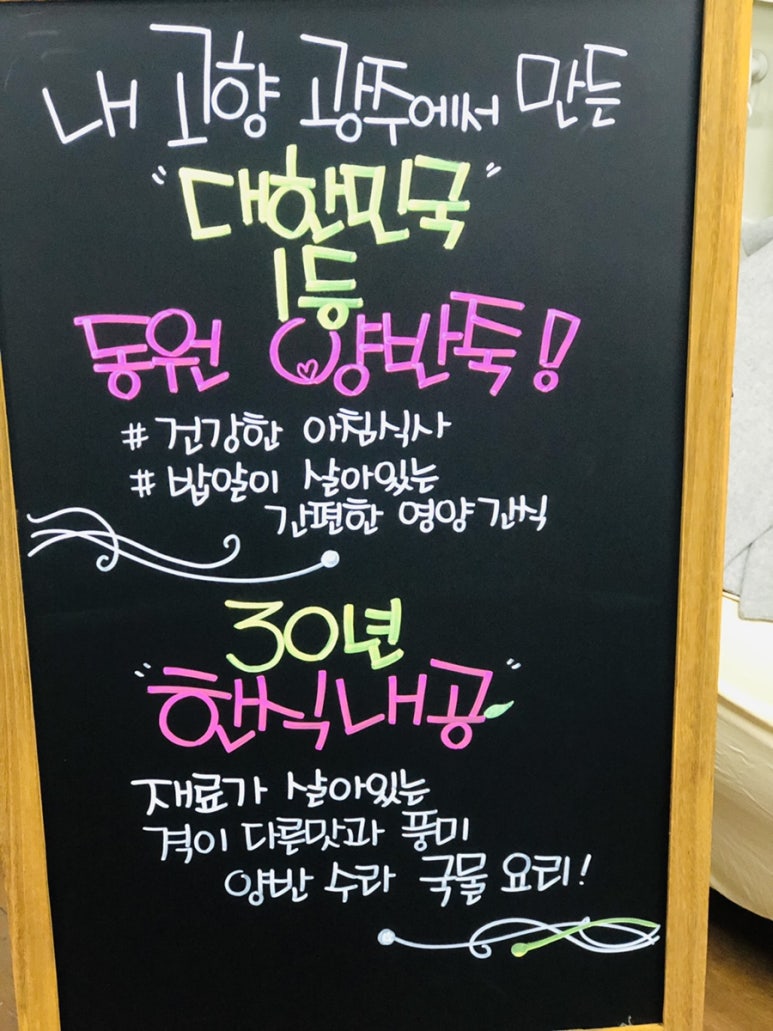 내 고향 광주에서 만든
"대한민국"
1등
동원 양반죽!
# 건강한 아침식사
# 밥알이 살아있는
간편한 영양간식
30년
"한식내공"
재료가 살아있는
격이 다른맛과 풍미
양반 수라 국물요리!